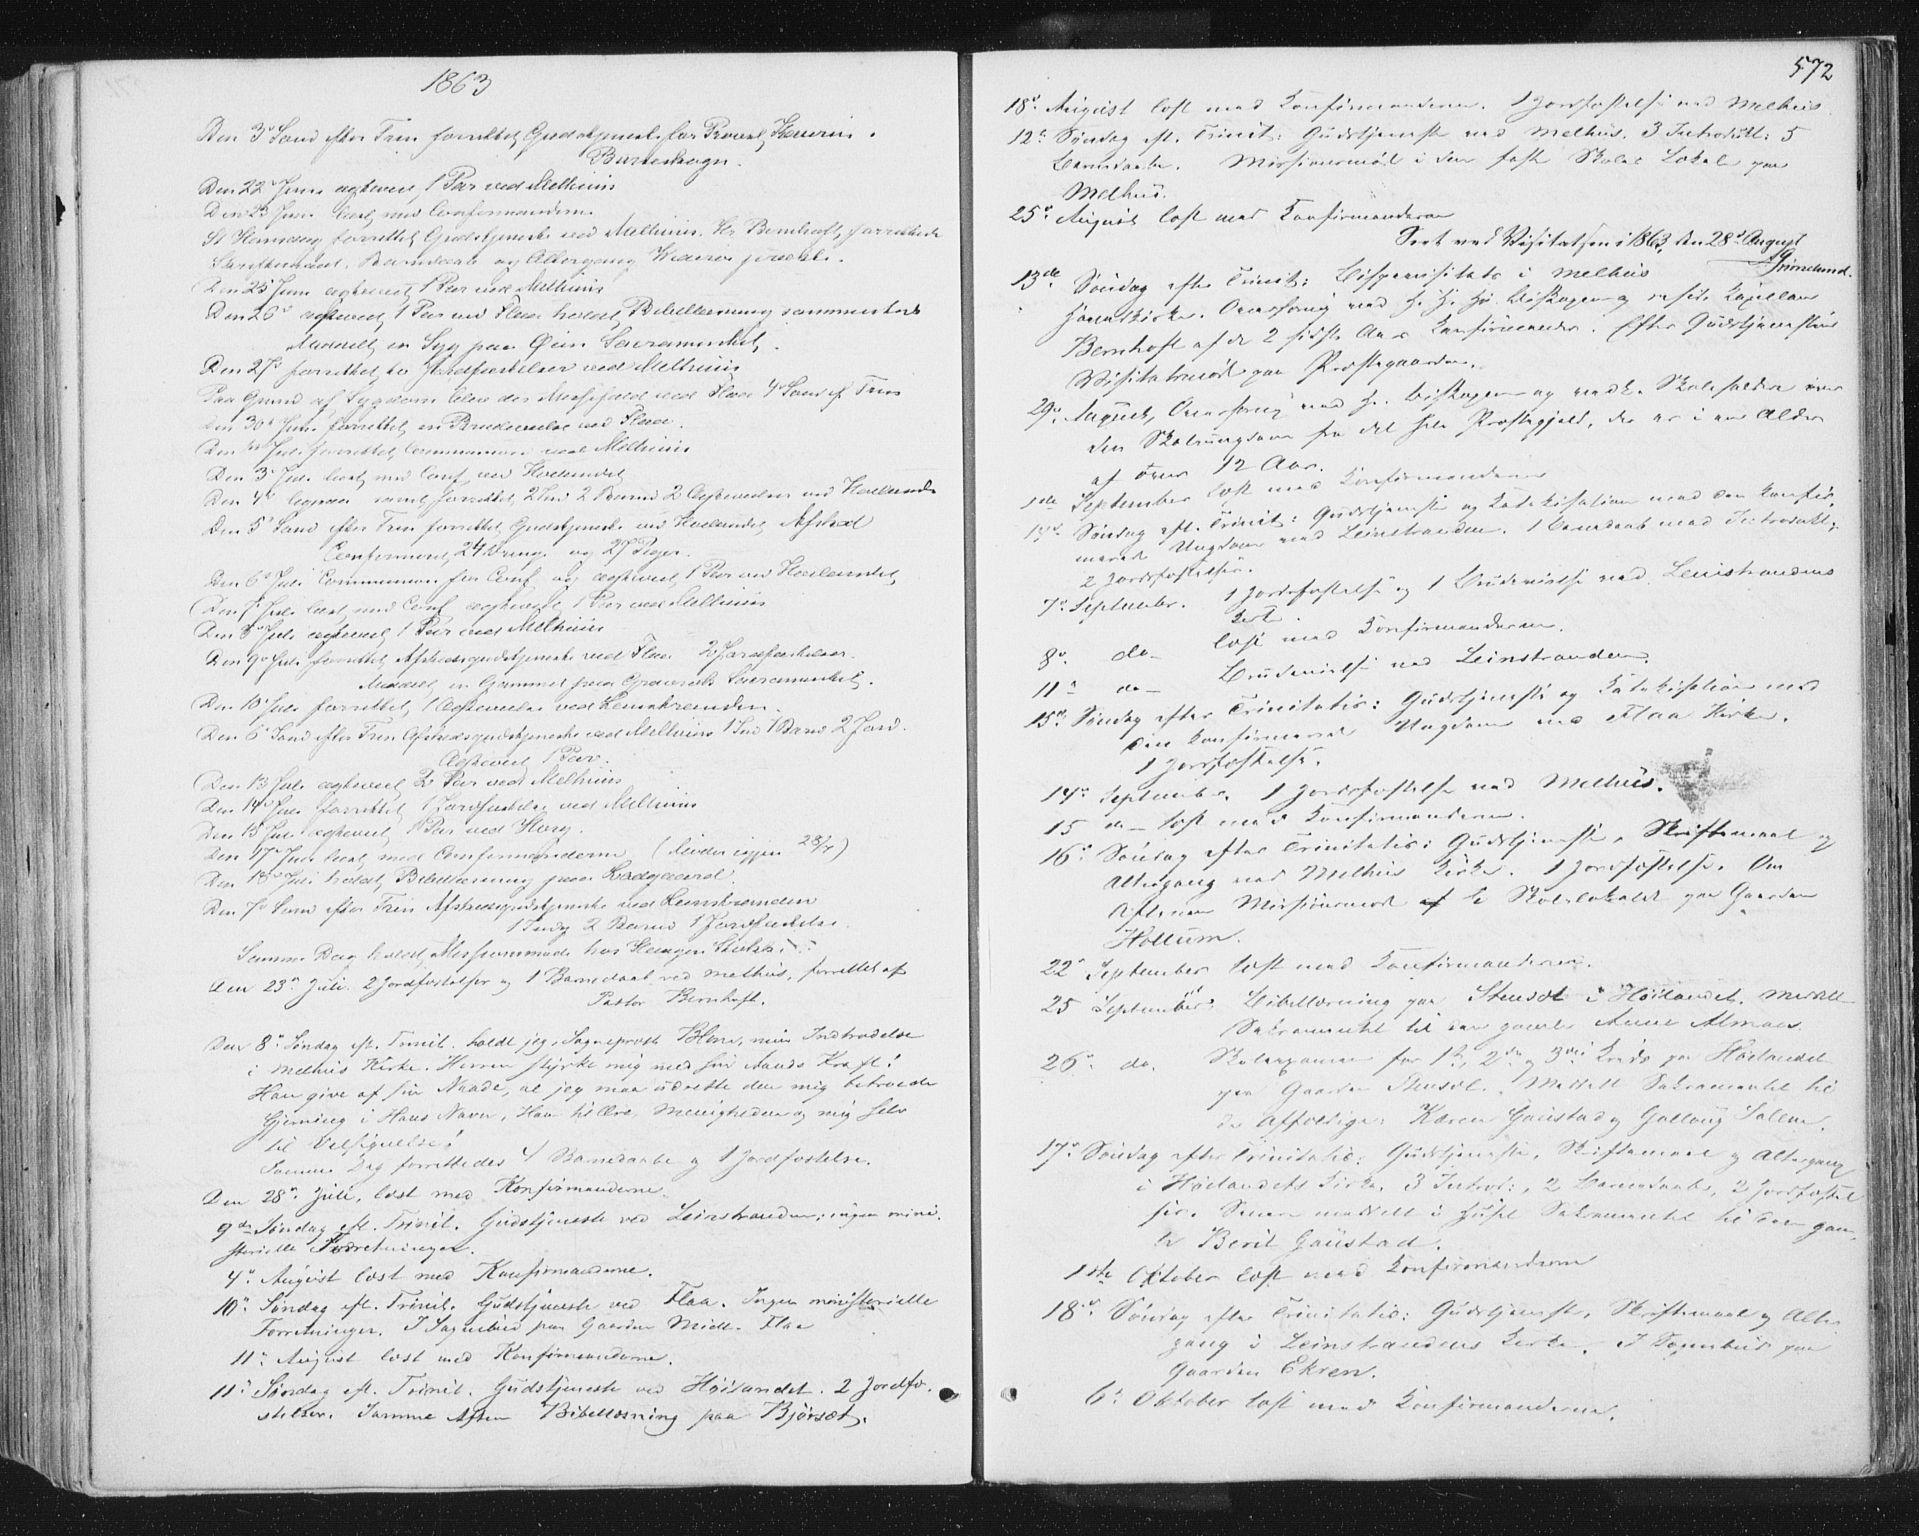 1863
Den 3die Sønd efter Trin forrettet Gudstjeneste for Provst
Den 22de Juni ægteviet 1 Par ved Melhuus
Den 23 Juni læst med Confirmanderne
St Hansdag forrettet Gudstjeneste ved Melhuus. Hr Bernhoft forrettede
Skriftemaal, Barnedaab og Altergang
Den 25 Juni ægteviet 1 Par ved Melhuus
Den 26 ægteviet 1 Par ved Flaa holdt Bibellæsning sammesteds
Meddelt en Syg paa Øien Sacramentet.
Den 27 forrettet to Jordfæstelser ved Melhuus
Paa Grund af Sygdom blev der Messefald ved Flaa 4 Sønd ef Trin
Den 30 Juni forrettet en Brudevielse ved Flaa.
Den Juli forrettet Communion ved Melhuus
Den 3 Juli læst med Conf. ved Høilandet
Den 4 forrettet 2 Ind 2 Barnd 2 Ægtevielser ved Høilandet
Den 5 Sønd efter Trin forrettet Gudstjeneste ved Høilandet, Afsked
Confirmeret 24 Drenge og 27 Piger.
Den 6 Juli Communion for Conf. og ægteviet 1 Par ved Høilandet
Den 7 Juli læst med Conf. ægteviet 1 Par ved Melhuus
Den 8 Juli ægteviet 1 Par ved Melhuus
Den 9 Juli forrettet Afskedsgudstjeneste ved Flaa 2 Jordfæstelser.
Meddelt en Gammel paa Sacramentet.
Den 10 Juli forrettet 1 Ægtevielse ved Leinstranden.
Den 6 Sønd efter Trin Afskedsgudstjeneste ved Melhuus 1 Ind 1 Barnd 2 Jord.
Ægteviet 1 Par.
Den 13 Juli ægteviet 2 Par ved Melhuus
Den 14 Juli forrettet 1 Jordfæstelse ved Melhuus
Den 15 Juli ægteviet 1 Par ved Horg.
Den 17 Juli læst med Confirmanderne (Møder igjen 28/7)
Den 18 Juli holdt Bibellæsning paa
Den 7 Sønd efter Trin Afskedsgudstjeneste ved Leinstranden
1 Indg 2 Barnd 1 Jordfæstelse.
Samme Dag holdt Missionsmøde hos
Den 23de Juli. 2 Jordfæstelser og 1 Barnedaab ved Melhus, forrettet af
Pastor Bernhoft.
Den 8de Søndag eft. Trinit. holdt jeg, Sogneprest Blom, min Indtrædelse
i Melhus Kirke. Herren styrke mig med sin Aands Kraft!
Han give af sin Naade, at jeg maa udrette den mig betroede
Gjerning i Hans Navn, Ham til Ære, Menigheden og mig selv
til Velsignelse!
Samme Dag forrettedes 4 Barnedaabe og 1 Jordfæstelse.
Den 28de Juli, læst med Konfirmanderne.
9de Søndag eft. Trinit. Gudstjeneste ved Leinstranden; ingen mini-
sterielle Forretninger.
4de August læst med Konfirmanderne.
10de Søndag eft. Trinit. Gudstjeneste ved Flaa. Ingen ministerielle
Forretninger. I Sognebud paa Gaarden Midt-Flaa
11te August læst med Konfirmanderne.
11te Søndag eft. Trinit. Gudstjeneste ved Høilandet. 2 Jordfæ-
stelser. Samme Aften Bibellæsning paa Bjørset.
572
18de August læst med Konfirmanderne. 1 Jordfæstelse ved Melhus
12te Søndag eft. Trinit: Gudstjeneste ved Melhus. 3 Introdukt: 5
Barnedaabe. Missionsmøde i den faste Skoles Lokale paa
Melhus.
25de August læst med Konfirmanderne
Seet ved Visitatsen i 1863, den 28de August
Grimelund.
13de Søndag efter Trinit: Bispevisitats i Melhus
Hovedkirke. Overhøring ved H. H. Hr. Biskopen og resid. Kapellan
Bernhoft af de 2 sidste Aars Konfirmander. Efter Gudstjenesten
Visitatsmøde paa Præstegaarden.
29de August, Overhøring ved Hr. Biskopen og vedk. Skoleholdere over
den Skoleungdom fra det hele Præstegjeld, der er i en Alder
af over 12 Aar.
1ste September læst med Konfirmanderne
Søndag eft. Trinit: Gudstjeneste og Katekisation med den konfir-
merede Ungdom ved Leinstranden. 1 Barnedaab med Introdukt:
2 Jordfæstelser.
7de September. 1 Jordfæstelse og 1 Brudevielse ved Leinstrandens
Kirke.
8de do læst med Konfirmanderne.
11te do Brudevielse ved Leinstranden.
15de Søndag efter Trinitatis: Gudstjeneste og Katekisation med
den konfirmerede Ungdom ved Flaa Kirke.
1 Jordfæstelse.
14de September. 1 Jordfæstelse ved Melhus.
15 do læst med Konfirmanderne.
16de Søndag efter Trinitatis: Gudstjeneste, Skriftemaal og
Altergang ved Melhus Kirke. 1 Jordfæstelse. Om
Aftenen Missionsmøde i Skolelokalet paa Gaarden
Hollum.
22de September læst med Konfirmanderne.
25 September: Bibellæsning paa Stensæt i Høilandet. Meddelt
Sakramentet til den gamle Anne Almaas.
26de do. Skoleexamen for 1ste, 2den og 3die Kreds paa Høilandet
paa Gaarden Stensæt. Meddelt Sakramentet til
de Affældige: Karen Gaustad og
17de Søndag efter Trinitatis: Gudstjeneste, Skriftemaal og Altergang
i Høilandets Kirke. 3 Introd:, 2 Barnedaabe, 2 Jordfæstel-
ser. Senere meddelt i Huset Sakramentet til den gam-
le Berit Gaustad.
1ste Oktober læst med Konfirmanderne
18de Søndag efter Trinitatis: Gudstjeneste, Skriftemaal og Alter-
gang i Leinstrandens Kirke. I Sognebud paa
Gaarden Ekren.
6te Oktober læst med Konfirmanderne.